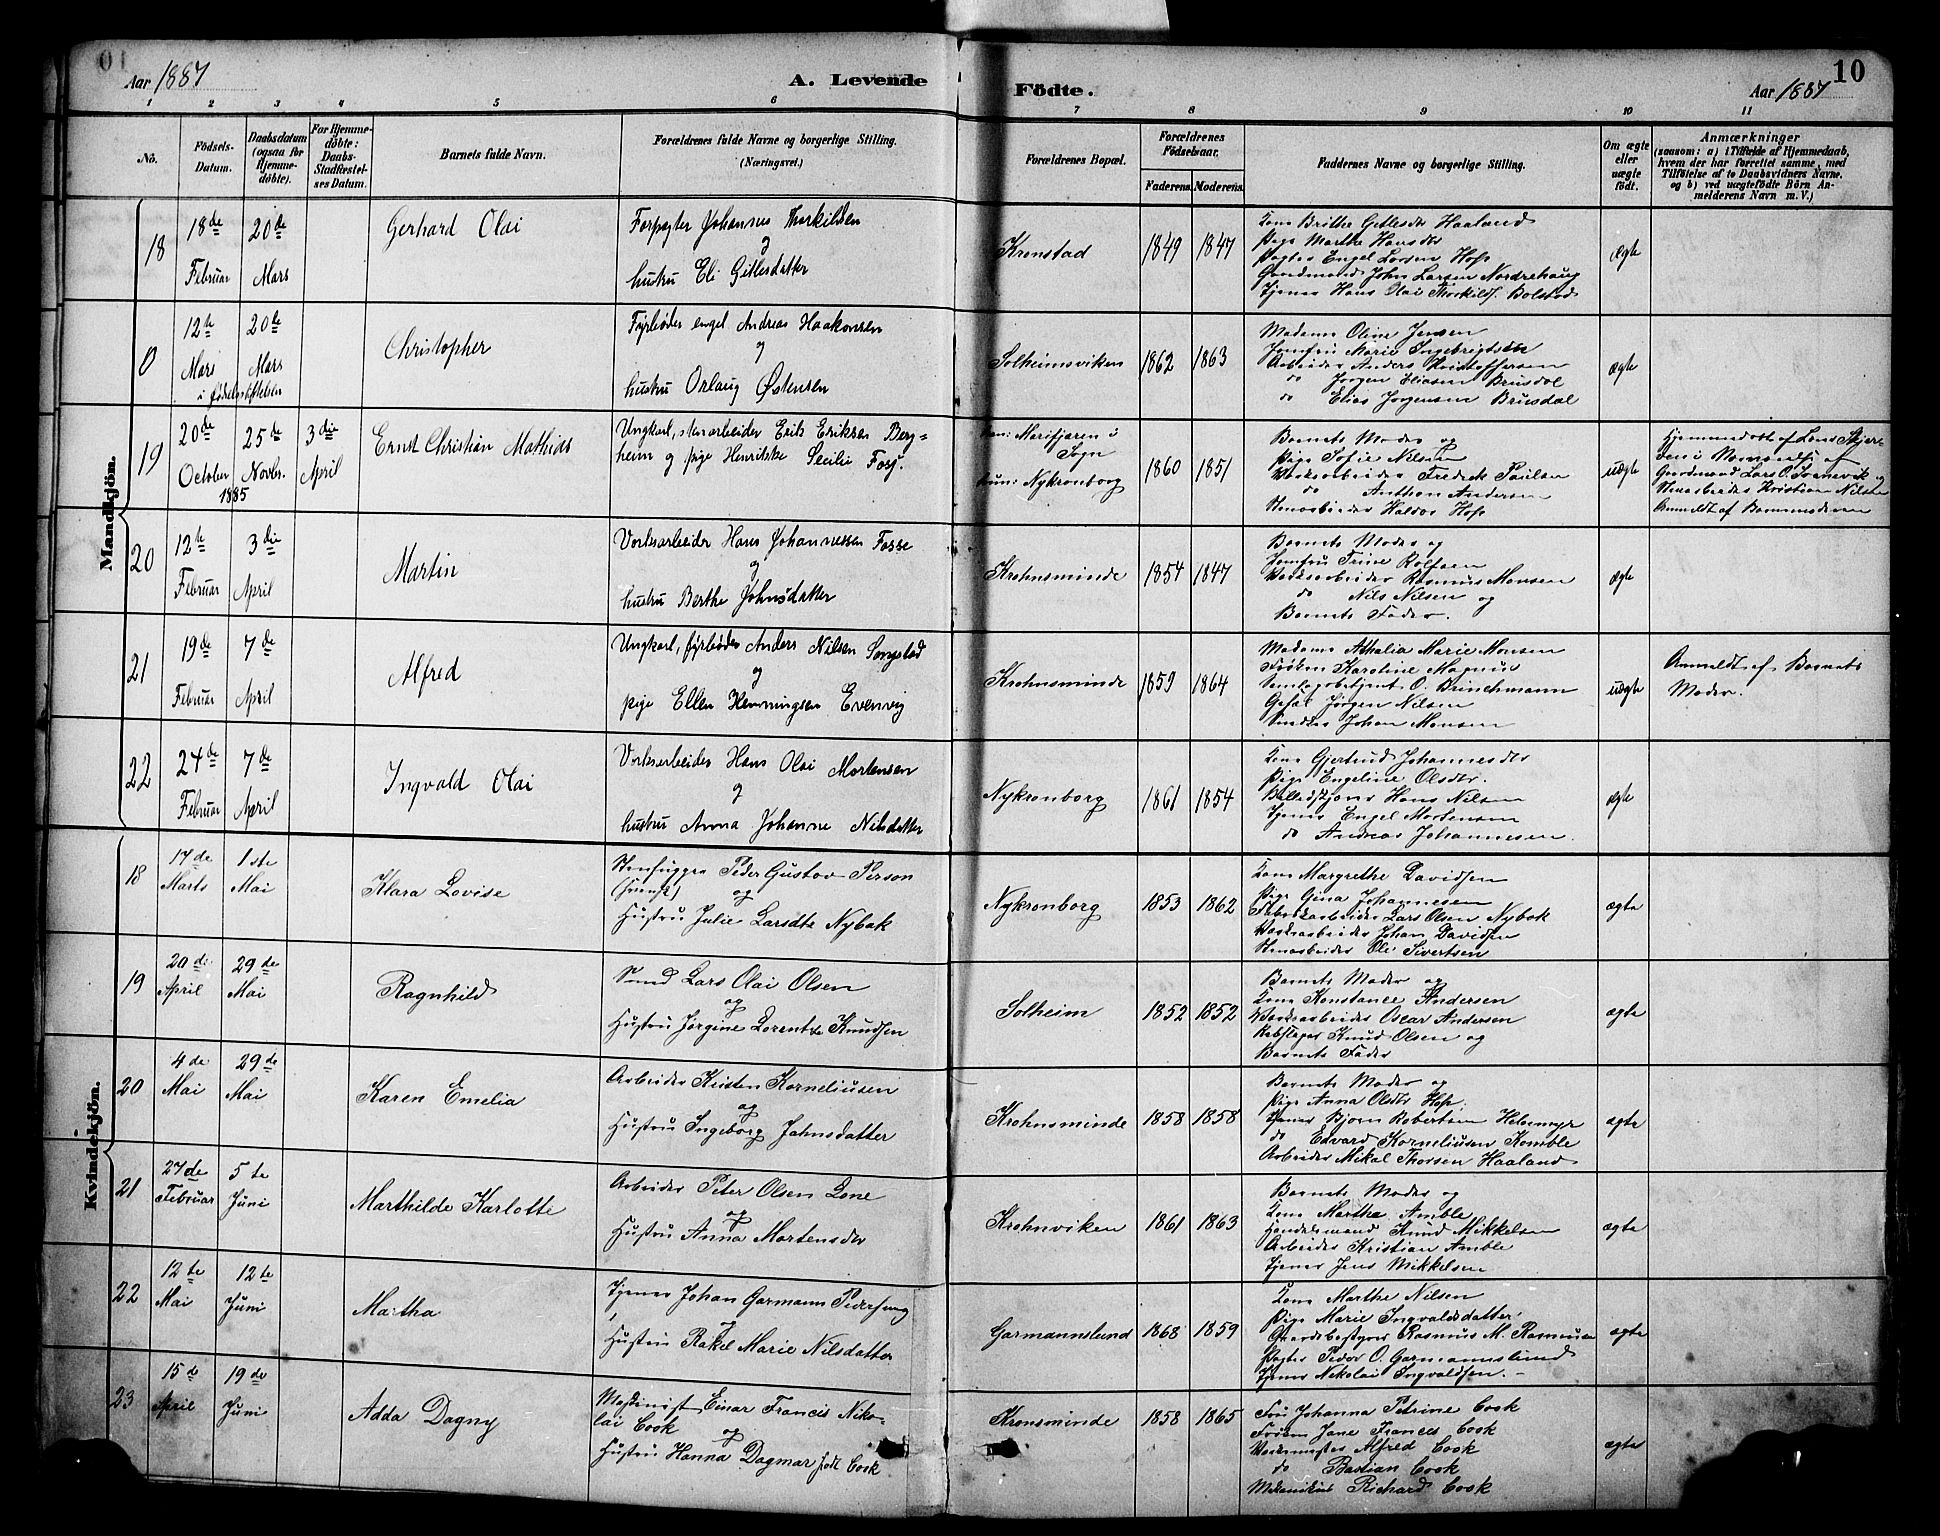 01
Aar 1887
A. Levende
Födte.
Aar 1887
10
1 2 3 4 5 6 7 8 9 10 11
No.
Födsels-
Datum.
Daabsdatum
(ogsaa for
Hjemme-
döbte).
For Hjemme-
döbte:
Daabs-
Stadfæstel-
ses Datum.
Barnets fulde Navn.
Forældrenes fulde Navne og borgerlige Stilling.
(Næringsvei.)
Forældrenes Bopæl.
Forældrenes
Födselsaar.
Faderens. Moderens.
Faddernes Navne og borgerlige Stilling.
Om ægte
eller
uægte
födt.
Anmærkninger
(saasom: a) i Tilfælde af Hjemmedaab,
hvem der har forrettet samme, med
Tilföielse af to Daabsvidners Navne.
og b) ved uægtefödte Börn An-
melderens Navn m. V.)
Mandkjön.
18
18de
Februar
20de
Mars
Gerhard Olai
Forpagter Johannes Thorkildsen
og
hustru Eli Gitlesdatter
Kronstad
1849 1847
Kone Brithe Gitlesdtr Haaland
Pige Marthe Hansdtr
Pagter Engel Larsen Hop
Gaardmand John Larsen Nordrehaug
Tjener Hans Olai Thorkilds. Bolstad
Ægte
0
12te
Mars
20de
Mars
i fødselsstiftelsen
Christopher
Fyrbøder Engel Andreas Haakonsen
og
hustru Orlaug Østensen
Solheimsviken
1862 1863
Madame Oline Jensen
Jomfru Marie Ingebrigtsen
Arbeider Anders Kristoffersen
do Jørgen Eliasen Brusdal
do Elias Jørgensen Brusdal
ægte
19
20de
October
1885
25de
Novbr.
3die
April
Ernst Christian Mathias
Ungkarl, stenarbeider Erik Eriksen Berg=
heim og pige Henrikke Secilie Fosj.
han: Marifjæren i
Sogn
hun: Nykronborg
1860 1851
Barnets Moder og
Pige Sofie Nilsen
Værksarbeider Fredrik Paulsen
do Anthon Andersen
Stenarbeider Haldor Hop
uægte
Hjemmedøbt af Lens Skjer
Gaardmand Lars O.
Stenarbeider Kristian Nilsen
Anmeldt af Barnemoderen
20
12te
Februar
3die
April
Martin
Værksarbeider Hans Johannessen Fosse
og
hustru Berthe Johnsdatter
Krohnsminde
1854 1847
Barnets Moder og
Jomfru Trine Rolfsen
Værksarbeider Rasmus Monsen
do Nils Nilsen og
Barnets Fader.
ægte
21
19de
Februar
7de
April
Alfred
Ungkarl, fyrbøder Anders Nilsen Songstad
og
pige Ellen Henningsen Evenvig
Krohnsminde
1859 1864
Madame Athalia Marie Monsen
Frøken Karoline Magnus
O. Brinchmann
Jørgen Nilsen
Johan Monsen
uægte
Anmeldt af Barnets
Moder.
22
24de
Februar
7de
April
Ingvald Olai
Værksarbeider Hans Olai Mortensen
og
hustru Anna Johanne Nilsdatter
Nykronborg
1861 1854
Kone Gjertrud Johannesdtr
Pige Engeline Olsdtr.
Hans Nilsen
Tjener Engel Mortensen
do Andreas Johannesen
ægte
Kvindekjön.
18
17de
Marts
1ste
Mai
Klara Lovise
Stenhugger Peder Gustav Person
(svensk) og
Hustru Julie Larsdtr Nybak
Nykronborg
1853 1862
Kone Margrethe Davidsen
Pige Gina Johannesen
Fabrikarbeider Lars Olsen Nybak
Værksarbeider Johan Davidsen
Stenarbeider Ole Sivertsen
ægte
19
20de
April
29de
Mai
Ragnhild
Smed Lars Olai Olsen
og
Hustru Jørgine Lorentze Knudsen
Solheim
1852 1852
Barnets Moder og
Kone Konstance Andersen
Værksarbeider Oscar Andersen
Rebslager Knud Olsen og
Barnets Fader
ægte
20
4de
Mai
29de
Mai
Karen Emelia
Arbeider Kristen Korneliusen
og
Hustru Ingeborg Jahnsdatter
Krohnsminde
1858 1858
Barnets Moder og
Pige Anna Olsdtr Hop.
Tjener Bjørn Robertsen Helsemyr
do Edvard Korneliusen Komble
Arbeider Mikal Thorsen Haaland
ægte
21
27de
Februar
5te
Juni
Marthilde Karlotte
Arbeider Peter Olsen Lone
og
Hustru Anna Mortensdtr
Krohnviken
1861 1863
Barnets Moder og
Kone Martha Amble
Handelsmand Knud Mikkelsen
Arbeider Kristian Amble
Tjener Jens Mikkelsen
ægte
22
12te
Mai
12te
Juni
Martha
Tjener Johan Garmann Pedersen
og
Hustru Rakel Marie Nilsdatter
Garmannslund
1868 1859
Kone Marthe Nilsen
Pige Marie Ingvaldsdatter
Gaardsbestyrer Rasmus M. Rasmusen
Pagter Peder O. Garmannslund
Tjener Nikolai Ingvaldsen.
ægte
23
15de
April
19de
Juni
Adda Dagny
Maskinist Einar Francis Niko-
lai Cook og
Hustru Hanna Dagmar født Cook
Kronsminde
1858 1865
Fru Johanna Petrine Cook
Frøken Jane Frances Cook
Værksmester Alfred Cook
do Bastian Cook
Mekanikus Richard Cook
ægte